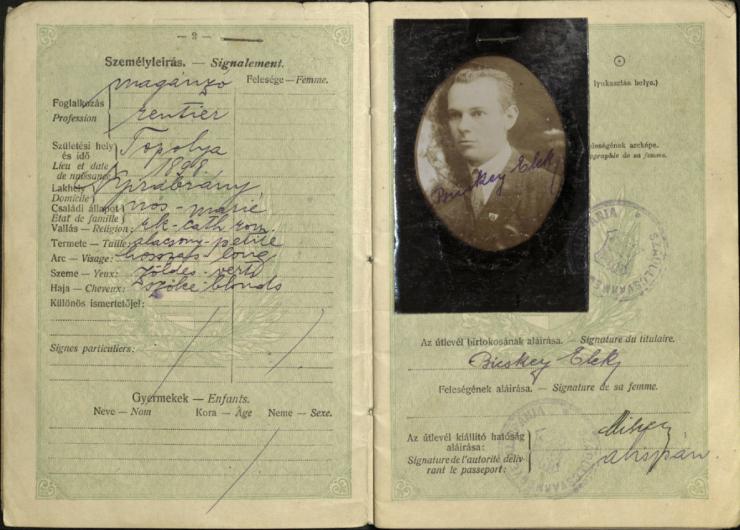 — 2 —
Személyleírás. — Signalement.
Felesége — Femme.
Foglalkozás
Profession
magánzó
rentier
Születési hely
és idő
Lieu et date
de naissance
Topolya
1898
Lakhely
Domicile
Családi állapot
État de famille
nős - marié
Vallás — Religion:
rk - cath. rom.
Termete — Taille:
alacsony - petite
Arc — Visage:
hosszas - long
Szeme — Yeux:
zöldes - verts
Haja — Cheveux:
szőke - blonds
Különös ismertetőjel:
Signes particuliers:
Gyermekek — Enfants.
Neve — Nom Kora — Âge Neme — Sexe.
lyukasztás helye.)
arcképe.
de sa femme.
Elek
Az útlevél birtokosának aláírása. — Signature du titulaire.
Elek
Feleségének aláírása. — Signature de sa femme.
Az útlevél kiállító hatóság
aláírása:
Signature de l'autorité déliv-
rant le passeport:
alispán.